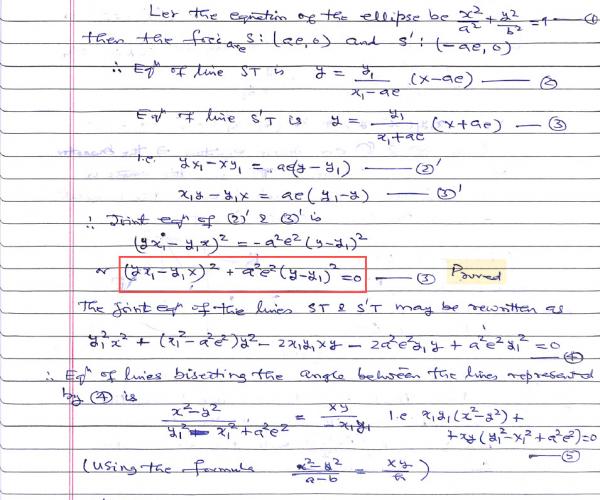 Let the equation of the ellipse be x²/a² + y²/b² = 1 — ①
then the foci are S: (ae, 0) and S': (-ae, 0)
∴ Eqⁿ of line ST is y = y₁/(x₁-ae) (x-ae) — ②
Eqⁿ of line S'T is y = y₁/(x₁+ae) (x+ae) — ③
i.e. yx₁-xy₁ = ae(y-y₁) — ②'
x₁y-y₁x = ae(y₁-y) — ③'
∴ Joint eqⁿ of (2)' & (3)' is
(yx₁-y₁x)² = -a²e²(y-y₁)²
or (yx₁-y₁x)² + a²e²(y-y₁)² = 0 — ③ Proved
The joint eqⁿ of the lines ST & S'T may be rewritten as
y₁²x² + (x₁²-a²e²)y² - 2x₁y₁xy - 2a²e²y₁y + a²e²y₁² = 0 — ④
∴ Eqⁿ of lines bisecting the angle between the lines represented
by (4) is
(x²-y²)/(y₁²-x₁²+a²e²) = xy/(-x₁y₁) i.e. x₁y₁(x²-y²) +
+xy(y₁²-x₁²+a²e²)=0 — ⑤
(Using the formula (x²-y²)/(a-b) = xy/h)